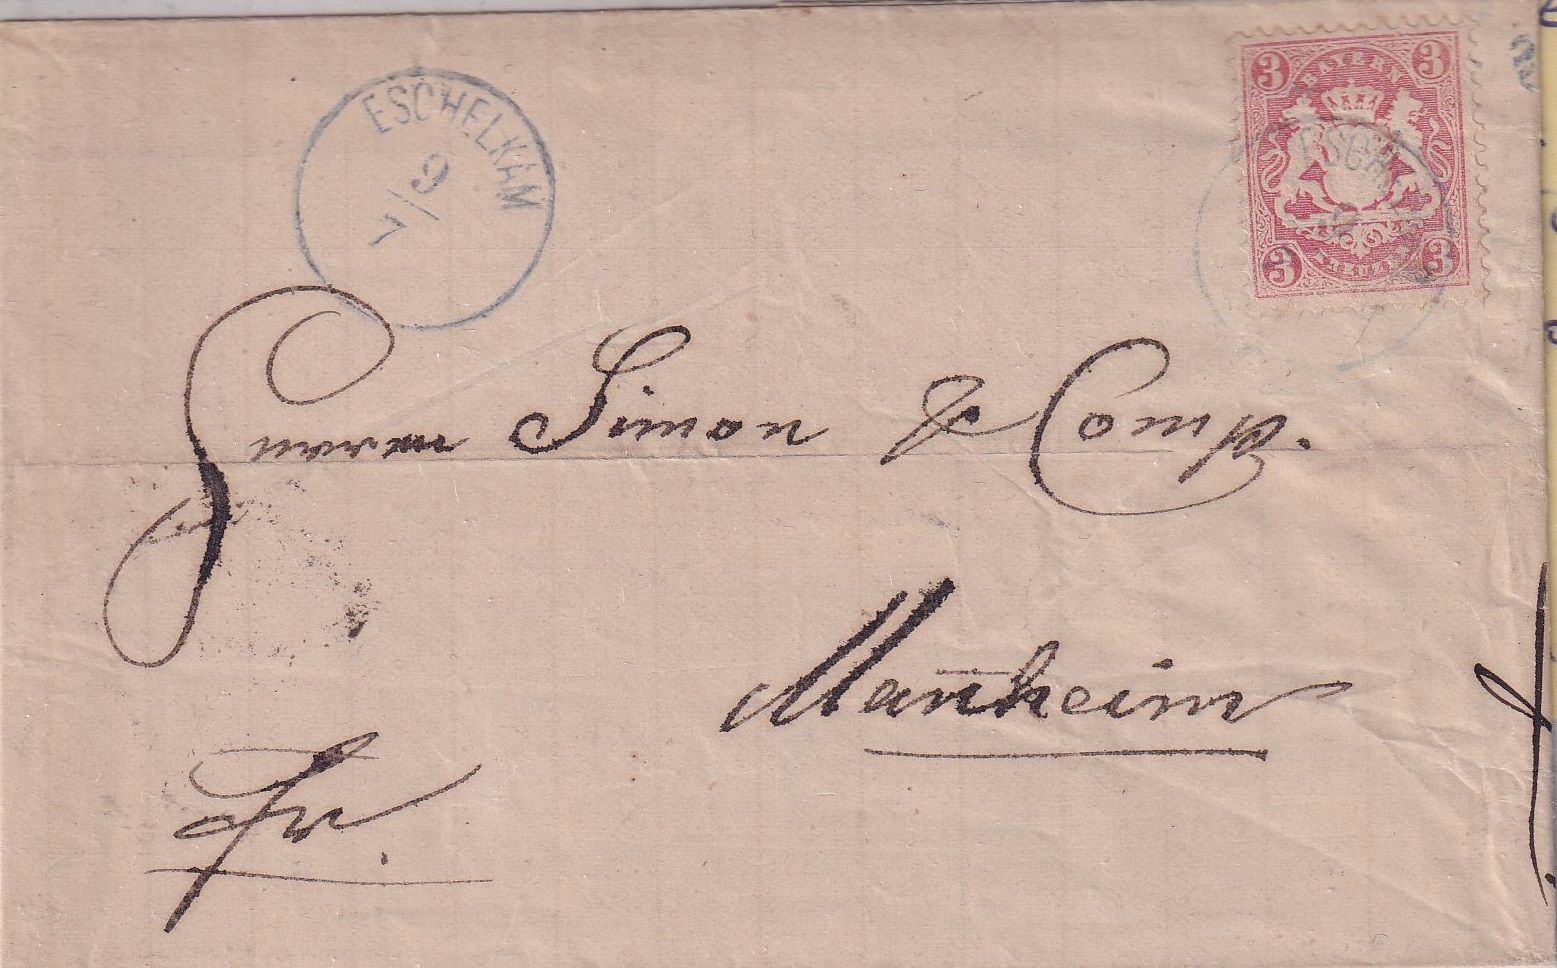 ESCHELKAM
7/9
3 BAYERN 3
ESCH
3 KREUZER 3
Herren Simon & Comp.
Man̅heim
fr.